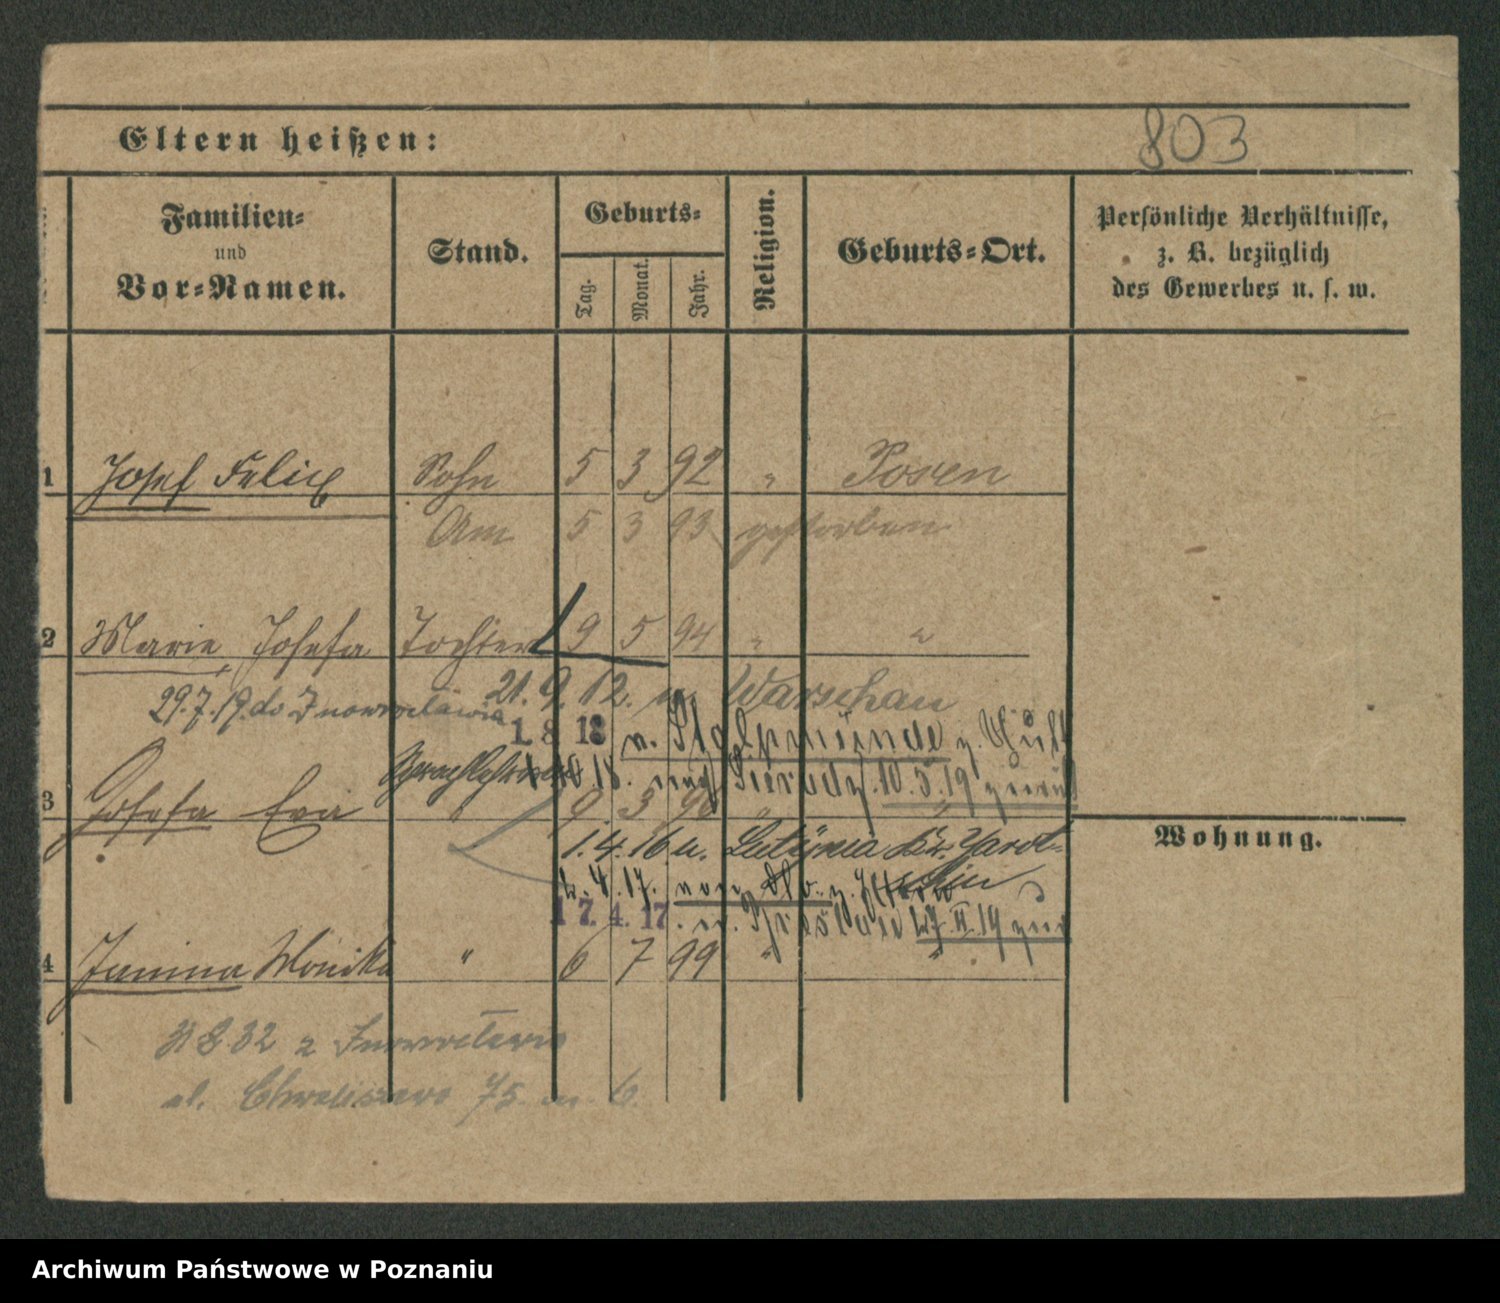 Eltern heißen:
803
Familien-
und
Vor-Namen.
Stand.
Geburts-
Tag.
Monat.
Jahr.
Religion.
Geburts-Ort.
Persönliche Verhältnisse,
z. B. bezüglich
des Gewerbes u. s. w.
1 Josef Felix Sohn 5 3 92 " Posen
Am 5 3 93 gestorben
2 Marie, Josefa Tochter 9 5 94 " "
21. 9. 12. n. Warschau
29.7.19. do Inowrocławia
1. 8 18 v. Stolpmünde z.
18. nach 10.5.19 zurück
3 Josefa Eva " 9 3 96 " "
Wohnung.
1.4.16 n. Lutynia Kr. Jarot-
schin
4. 17. von
17. 4. 17. n. 19 zur
4 Janina Monika " 6 7 99 " "
31 8 32 z Inowrocławia
ul. Chwaliszewo 75. m. 6.
Archiwum Państwowe w Poznaniu